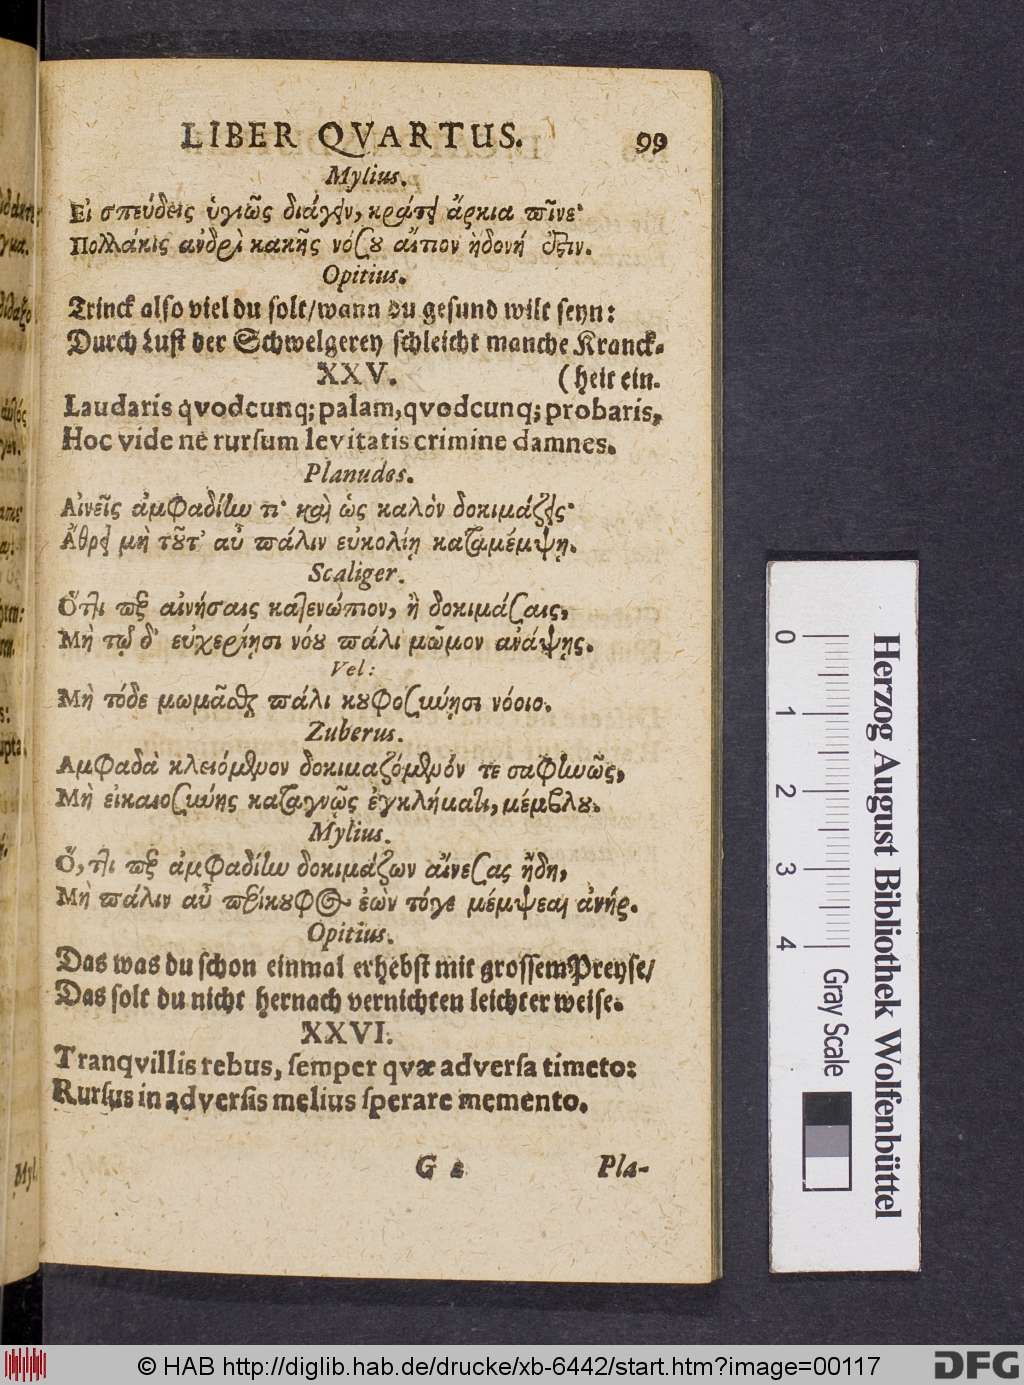 LIBER QVARTUS. 99
Mylius.
Εἰ σπεύδεις ὑγιῶς διάγειν, κράτει ἄρκια πῖνε·
Πολλάκις ἀνδρὶ κακῆς νόσου αἴτιον ἡδονή ὅξιν.
Opitius.
Trinck also viel du solt/wann du gesund wilt seyn:
Durch Lust der Schwelgerey schleicht manche Kranck-
XXV. (heit ein.
Laudaris qvodcunq; palam, qvodcunq; probaris,
Hoc vide ne rursum levitatis crimine damnes.
Planudes.
Αἰνεῖς ἀμφαδίην τι· καὶ ὡς καλὸν δοκιμάζεις·
Ἄθρει μὴ τοῦτ' αὖ πάλιν εὐκολίῃ καταμέμψῃ.
Scaliger.
Ὅττι περ αἰνήσαις κατενώπιον, ἢ δοκιμάσαις,
Μὴ τῷ δ' εὐχερίῃσι νόου πάλι μῶμον ἀνάψῃς.
Vel:
Μὴ τόδε μωμᾶσθαι πάλι κουφοσύνῃσι νόοιο.
Zuberus.
Αμφαδὰ κλειόμενον δοκιμαζόμενόν τε σαφηνῶς,
Μὴ εἰκαιοσύνης καταγνῷς ἐγκλήματι, μέμβλου.
Mylius.
Ὅ, τι περ ἀμφαδίην δοκιμάζων αἴνεσας ἤδη,
Μὴ πάλιν αὖ περίκουφος ἐὼν τόγε μέμψεαι ἀνήρ.
Opitius.
Das was du schon einmal erhebst mit grossem Preyse/
Das solt du nicht hernach vernichten leichter weise.
XXVI.
Tranqvillis rebus, semper qvæ adversa timeto:
Rursus in adversis melius sperare memento.
G 2 Pla-
Herzog August Bibliothek Wolfenbüttel
0 1 2 3 4 Gray Scale
© HAB http://diglib.hab.de/drucke/xb-6442/start.htm?image=00117
DFG